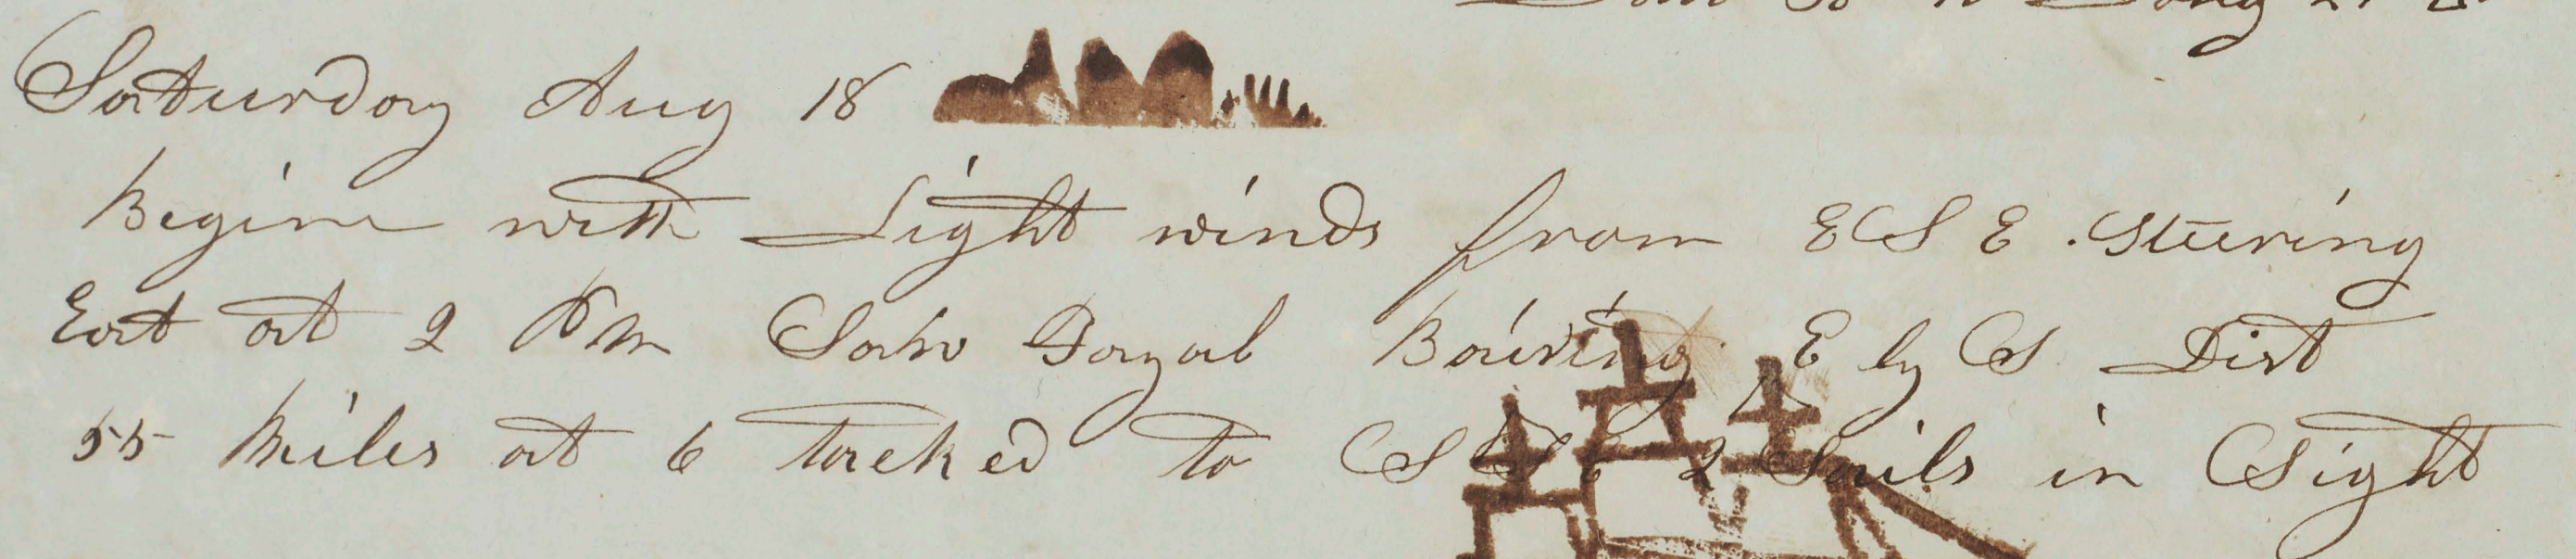 Saturday Aug 18
Begins with Light winds from E S E . Steering
East at 2 P M Saw Fayal Bairing E by S Dist
55 Miles at 6 tacked to S S E 2 Sails in Sight